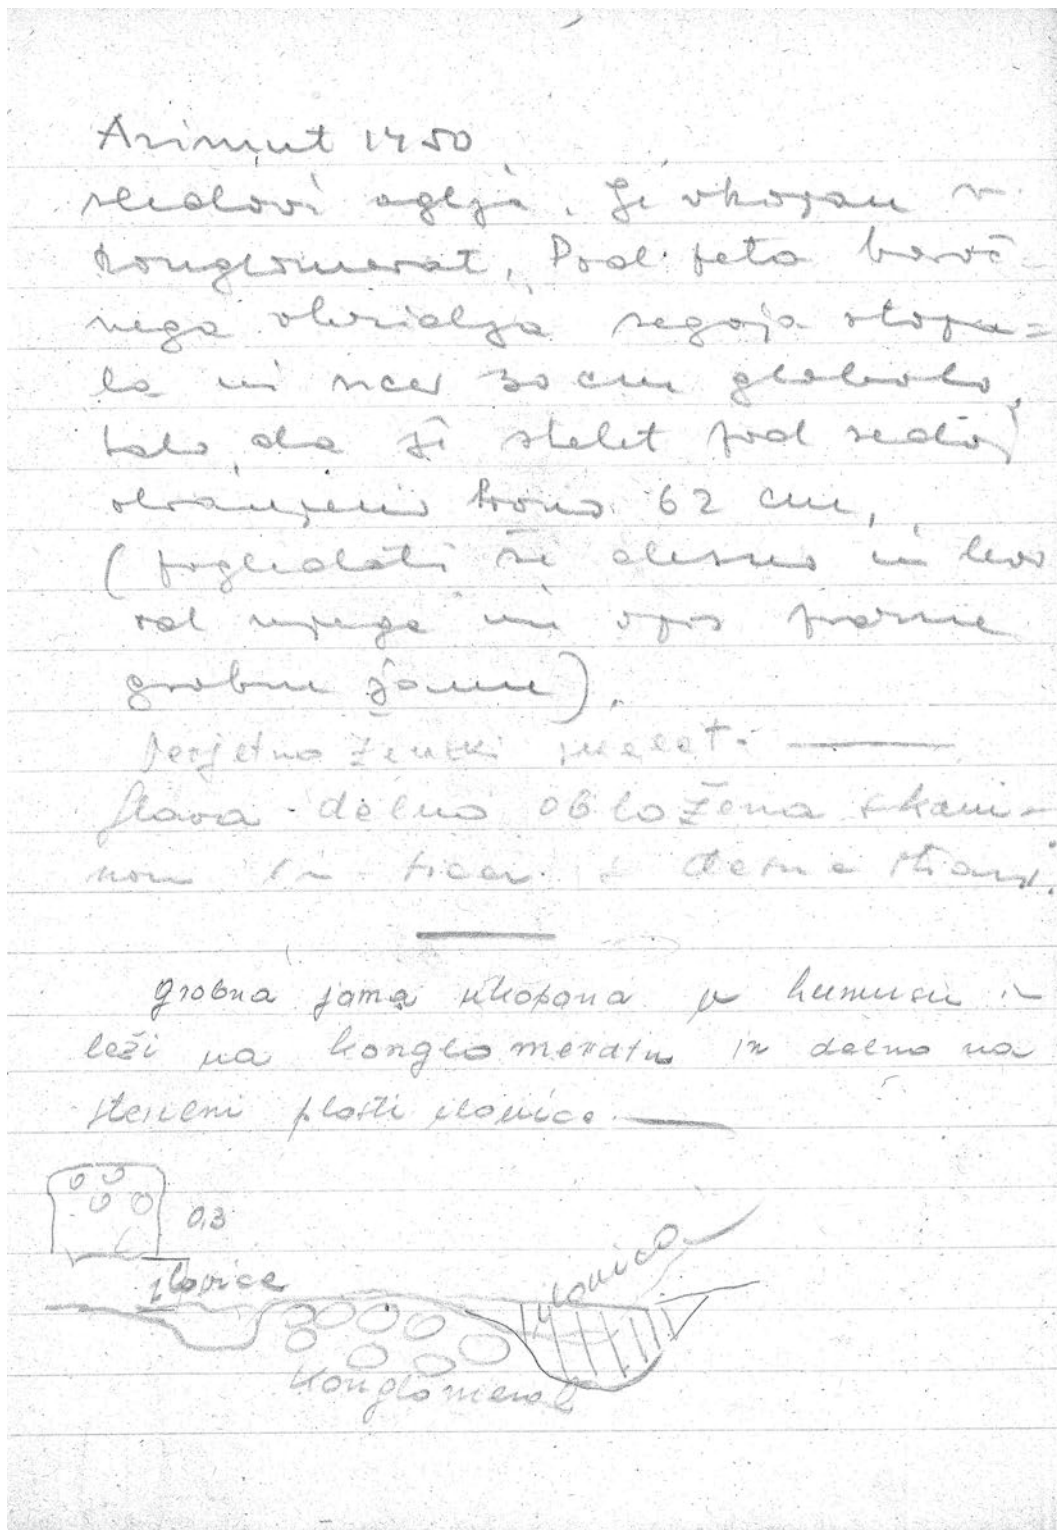 Azimut 1450
sledovi oglja. Je vkopan v
konglomerat. Pod peto baroč-
nega obzidja segajo stopa=
la in sicer 30 cm globoko,
tako, da je skelet pod sedaj
ohranjeno krono 62 cm,
(pogledati še desno in levo
od njega in opis pozne
grobne jame).
Verjetno ženski skelet.
Glava delno obložena s kam-
nom in sicer z desne strani.
grobna jama vkopana v humusu in
leži na konglomeratu in delno na
plasti ilovice
0,3
ilovica
ilovica
Konglomerat